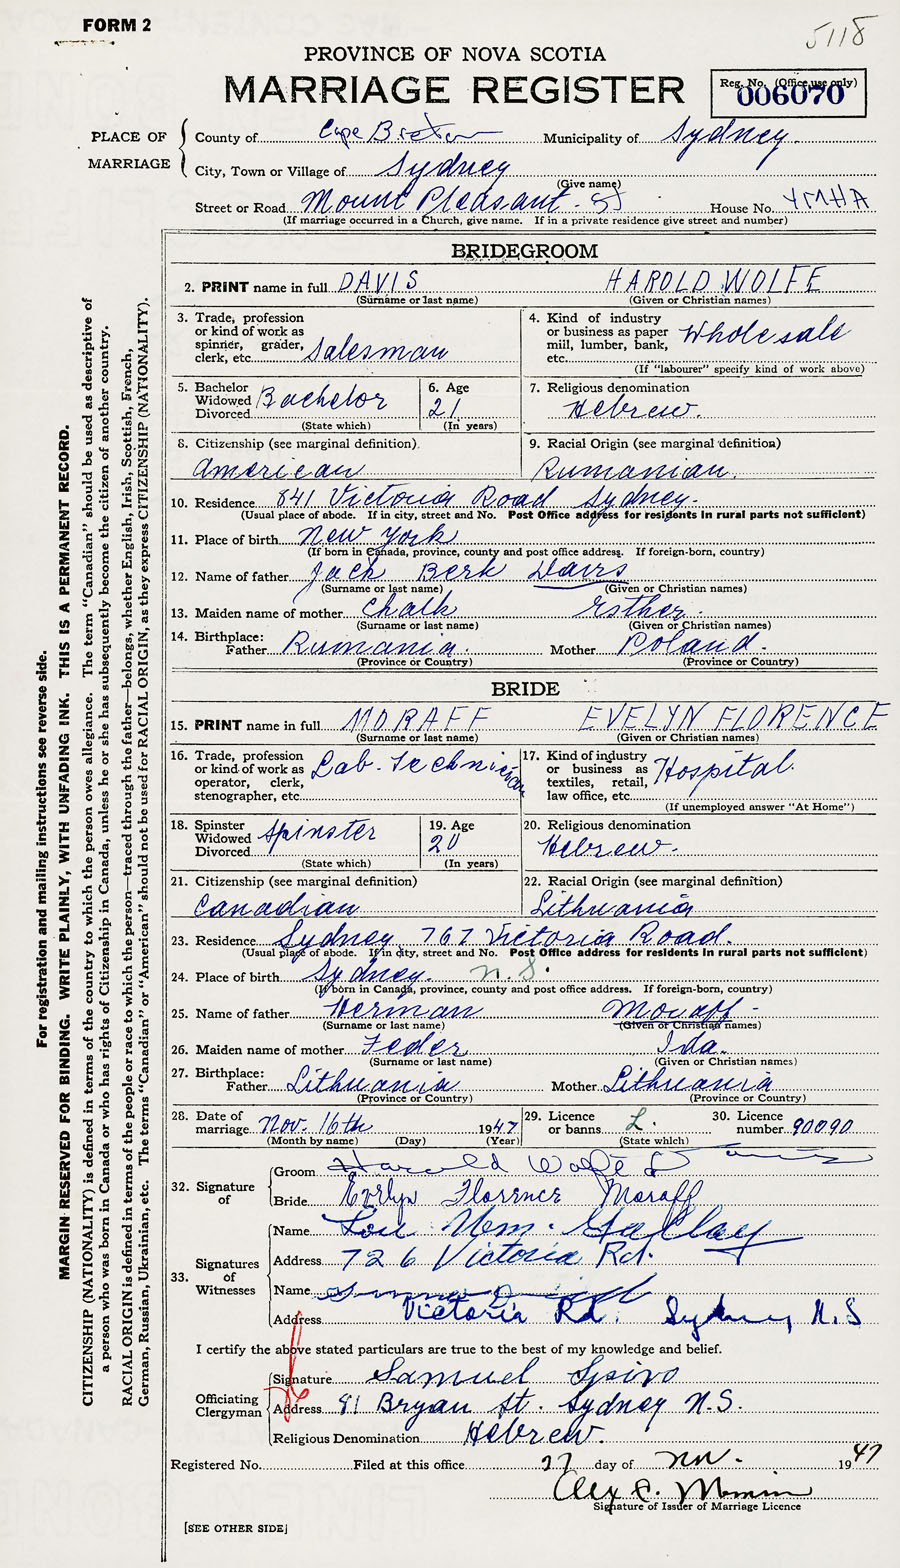 FORM 2
5118
PROVINCE OF NOVA SCOTIA
MARRIAGE REGISTER
Reg. No. (Office use only)
006070
PLACE OF MARRIAGE
County of Cape Breton Municipality of Sydney.
City, Town or Village of Sydney
(Give name)
Street or Road Mount Pleasant St House No. YMHA
(If marriage occurred in a Church, give name. If in a private residence give street and number)
BRIDEGROOM
2. PRINT name in full DAVIS HAROLD WOLFE
(Surname or last name) (Given or Christian names)
3. Trade, profession or kind of work as spinner, grader, clerk, etc. Salesman
4. Kind of industry or business as paper mill, lumber, bank, etc. Wholesale
(If "labourer" specify kind of work above)
5. Bachelor Widowed Divorced Bachelor
(State which)
6. Age 21
(In years)
7. Religious denomination Hebrew.
8. Citizenship (see marginal definition).
American
9. Racial Origin (see marginal definition)
Rumanian.
10. Residence 841 Victoria Road Sydney.
(Usual place of abode. If in city, street and No. Post Office address for residents in rural parts not sufficient)
11. Place of birth New York
(If born in Canada, province, county and post office address. If foreign-born, country)
12. Name of father Jack Berk Davis
(Surname or last name) (Given or Christian names)
13. Maiden name of mother Chalk Esther.
(Surname or last name) (Given or Christian names)
14. Birthplace:
Father Rumania. Mother Poland.
(Province or Country) (Province or Country)
BRIDE
15. PRINT name in full MORAFF EVELYN FLORENCE
(Surname or last name) (Given or Christian names)
16. Trade, profession or kind of work as operator, clerk, stenographer, etc. Lab. Technician
17. Kind of industry or business as textiles, retail, law office, etc. Hospital.
(If unemployed answer "At Home")
18. Spinster Widowed Divorced Spinster
(State which)
19. Age 20
(In years)
20. Religious denomination
Hebrew.
21. Citizenship (see marginal definition)
Canadian
22. Racial Origin (see marginal definition)
Lithuania
23. Residence Sydney 767 Victoria Road.
(Usual place of abode. If in city, street and No. Post Office address for residents in rural parts not sufficient)
24. Place of birth Sydney. N.S.
(If born in Canada, province, county and post office address. If foreign-born, country)
25. Name of father Herman Moraff
(Surname or last name) (Given or Christian names)
26. Maiden name of mother Feder Ida.
(Surname or last name) (Given or Christian names)
27. Birthplace:
Father Lithuania Mother Lithuania
(Province or Country) (Province or Country)
28. Date of marriage Nov. 16th 1947
(Month by name) (Day) (Year)
29. Licence or banns L.
(State which)
30. Licence number 90090
32. Signature of
Groom Harold Wolfe Davis
Bride Evelyn Florence Moraff
33. Signatures of Witnesses
Name Lou
Address 726 Victoria Rd.
Name
Address Victoria Rd. Sydney N.S
I certify the above stated particulars are true to the best of my knowledge and belief.
Officiating Clergyman
Signature Samuel Spiro
Address 81 Bryan St. Sydney N.S.
Religious Denomination Hebrew.
Registered No. Filed at this office 27 day of Nov. 1947
Signature of Issuer of Marriage Licence
[SEE OTHER SIDE]
For registration and mailing instructions see reverse side.
MARGIN RESERVED FOR BINDING. WRITE PLAINLY, WITH UNFADING INK. THIS IS A PERMANENT RECORD.
CITIZENSHIP (NATIONALITY) is defined in terms of the country to which the person owes allegiance. The term "Canadian" should be used as descriptive of
a person who was born in Canada or who has rights of Citizenship in Canada, unless he or she has subsequently become the citizen of another country.
RACIAL ORIGIN is defined in terms of the people or race to which the person—traced through the father—belongs, whether English, Irish, Scottish, French,
German, Russian, Ukrainian, etc. The terms "Canadian" or "American" should not be used for RACIAL ORIGIN, as they express CITIZENSHIP (NATIONALITY).